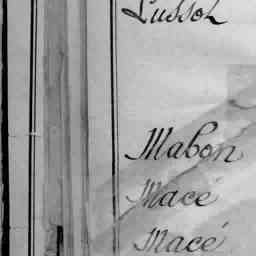 Lussol
Mabon
Macé
Macé